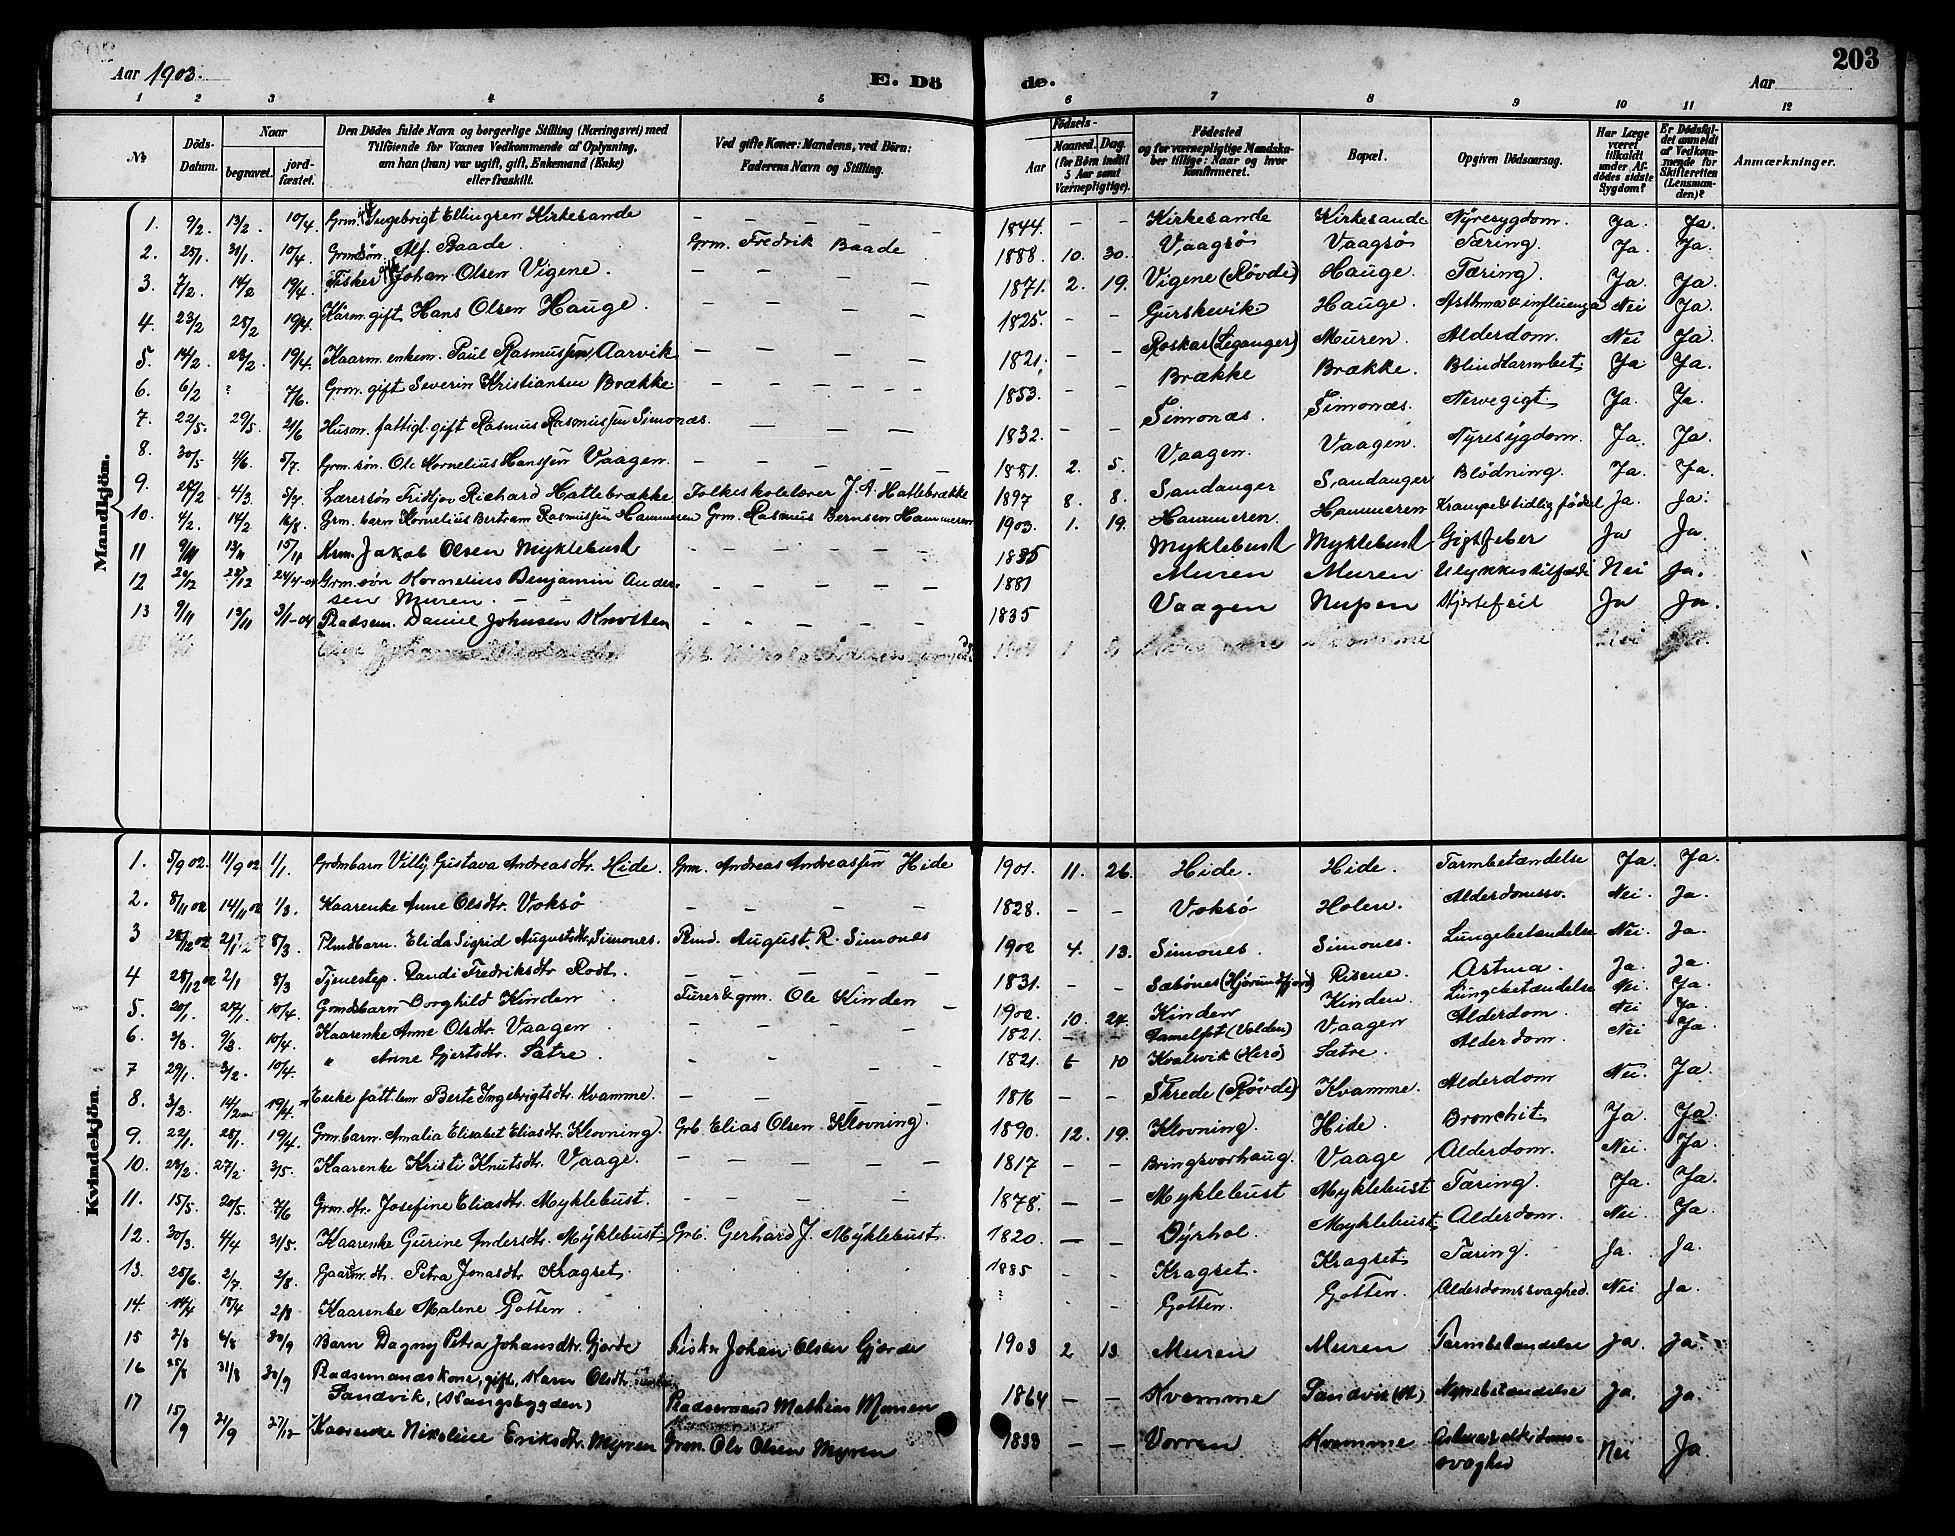 Aar 1903. E. Dö de. Aar 203
1 2 3 4 5 6 7 8 9 10 11 12
No Döds-Datum. Naar begravet. jord-fæstet. Den Dödes fulde Navn og borgerlige Stilling (Næringsvei) med Tilföiende for Voxnes Vedkommende af Oplysning, om han (hun) var ugift, gift, Enkemand (Enke) eller fraskilt. Ved gifte Koner: Mandens, ved Börn: Faderens Navn og Stilling. Födsels- Aar Maaned. Dag. (for Börn indtil 5 Aar samt Værnepligtige). Födested og for værnepligtige Mandska-ber tillige: Naar og hvor konfirmeret. Bopæl. Opgiven Dödsaarsag. Har Læge været tilkaldt under Af-dödes sidste Sygdom? Er Dödsfal-det anmeldt af Vedkom-mende for Skifteretten (Lensman-den)? Anmærkninger.
Mandkjön.
1. 9/2 13/2 10/4 Grm. Ingebrigt Ellingsen Kirkesande – – – – 1844. – – Kirkesande Kirkesande Nyresygdom. Ja. Ja.
2. 25/1. 31/1. 10/4. Grmdsön. Alf. Baade. Grm. Fredrik Baade 1888. 10. 30. Vaagsö Vaagsö Tæring. Ja. Ja.
3. 7/2. 14/2 19/4. Fisker Johan Olsen Vigene. – – – – 1871. 2. 19. Vigene (Rövde) Hauge. Tæring. Ja. Ja.
4. 23/2 28/2 19/4. Kårm. gift Hans Olsen Hauge. – – – – 1825. – – Gurskevik. Hauge. Asthma & influenza Nei Ja.
5. 14/2 23/2 19/4. Kaarm. enkem. Paul Rasmussen Aarvik – – – – 1821. – – Roskar (Leganger) Muren. Alderdom. Nei Ja.
6. 6/2 " 7/6. Grm. gift Severin Kristiansen Brække. – – – – – 1853. – – Brække Brække. Blindtarmbet. Ja Ja.
7. 22/5. 29/5. 21/6 Husm. fattigl. gift Rasmus Rasmussen Simonæs. – – – – 1832. – – Simonæs. Simonæs. Nervegigt. Ja. Ja.
8. 30/5 4/6. 5/7. Grm. sön. Ole Kornelius Hanssen Vaagen. – – – – – 1881. 2. 5. Vaagen. Vaagen. Nyresygdom. Ja. Ja.
9. 24/2 4/3. 5/7. Lærersön Fridtjov Richard Hatlebrække Folkeskolelærer J. A. Hatlebrække 1897 8. 8. Sandanger Sandanger Blödning. Ja. Ja.
10. 4/2. 14/2 16/8. Grm. barn Kornelius Bertram Rasmussen Hammeren Grm. Rasmus Berntsen Hammeren 1903. 1. 19. Hammeren. Hammeren Krampe & tidlig födsel Ja. Ja.
11 9/11 13/11 15/11 Krm. Jakob Olsen Myklebust – – – – – 1835 Myklebust Myklebust Gigtfeber Ja Ja.
12 20/12 28/12 24/4-04 Grm. sön Kornelius Benjamin Ander-
sen Muren. – – – – – 1881 Muren Muren Ulykkestilfælde Nei Ja.
13 9/11 13/11 3/1-04 Pladsem. Daniel Johnsen Knotten – – – – – 1835 Vaagen Nupen Hjertefeil Ja Ja.
Kvindekjön.
1. 5/9 02. 11/9 02 1/1. Grdmbarn Villy Gustava Andreasdtr. Hide. Grm. Andreas Andreassen Hide 1901. 11. 26. Hide. Hide. Tarmbetændelse Ja. Ja.
2. 8/11 02 14/11 02 1/3. Kaarenke Anne Olsdtr. Voksö – – – – 1828. – – Voksö Holen. Alderdomssv. Nei. Ja.
3 28/12 02 2/1 8/3. Plmdbarn. Elida Sigrid Augustsdtr. Simones. Plmd. August. R. Simones 1902 4. 13. Simones. Simones. Lungebetændelse Nei. Ja.
4 28/12 02 2/1 8/3 Tjenestep. Randi Fredriksdtr Rodt. – – – – – 1831. – – Sæbönes (Hjörundfjord) Risene. Astma. Ja. Ja.
5. 20/1. 27/1. 10/4. Grmdsbarn Borghild Kinden Furer & grm. Ole Kinden – 1902. 10 24. Kinden Kinden. Lungebetændelse Nei. Ja.
6. 3/3. 9/3. 10/4. Kaarenke Anne Olsdtr. Vaagen. – – – – 1821. – – Damelfet (Volden) Vaagen Alderdom. Nei Ja.
7 29/1. 3/2. 10/4. " Anne Gjertsdtr. Sætre. – – – – 1821. 6 10 Kvalsvik (Herö) Sætre. Alderdom. Nei Ja.
8. 3/2. 14/2 19/4. Enke fattlem Berte Ingebrigtsdtr. Kvamme. – – – – 1816 – – Skrede (Rövde) Kvamme. Alderdom Nei. Ja
9. 22/1. 28/1. 19/4. Grmbarn. Amalia Elisabet Eliasdtr. Klovning. Grb. Elias Olsen. Klovning. 1890. 12. 19. Klovning. Hide. Bronchit. Ja. Ja.
10. 23/2. 27/2 3/5. Kaarenke Kristi Knutsdtr. Vaage. – – – – – 1817 – – Bringsvorhaug. Vaage Alderdom. Nei. Ja.
11. 15/5. 20/5. 7/6 Grm. dtr. Josefine Eliasdtr. Myklebust. – – – – – 1878. – – Myklebust Myklebust Tæring. Ja. Ja.
12. 30/3. 4/4 3/5. Kaarenke Gurine Andersdtr. Myklebust. Grb. Gerhard J. Myklebust. 1820. – – Dyrhol. Myklebust. Alderdom. Nei. Ja.
13. 25/6. 2/7. 2/8. Gaarm. dtr. Petra Jonasdtr Kragset. 1885 – – Kragset. Kragset. Tæring. Ja. Ja.
14. 14/4 18/4 2/8 Kaarenke Malene Gotten. ? – – Gotten. Gotten. Alderdomssvaghed. Nei Ja.
15 2/8 6/8 30/9 Barn Dagny Petra Johansdtr. Gjerde Fisker Johan Olsen Gjerde 1903 2 13. Muren Muren Tarmbetændelse Ja Ja.
16 25/8 31/8 30/9 Pladsemandskone, gift, Karn Olsdtr.
Sandvik, (Vangsbygden) Pladsemand Mathias Mursen 1864 – – Kvamme Sandvik Nyrebetændelse Ja. Ja.
17 15/9 21/9 27/12 Kaarenke Nikoline Eriksdtr. Myren Grm. Ole Olsen Myren 1833 – – Vorren Kvamme alderdoms-
svaghed Nei Ja